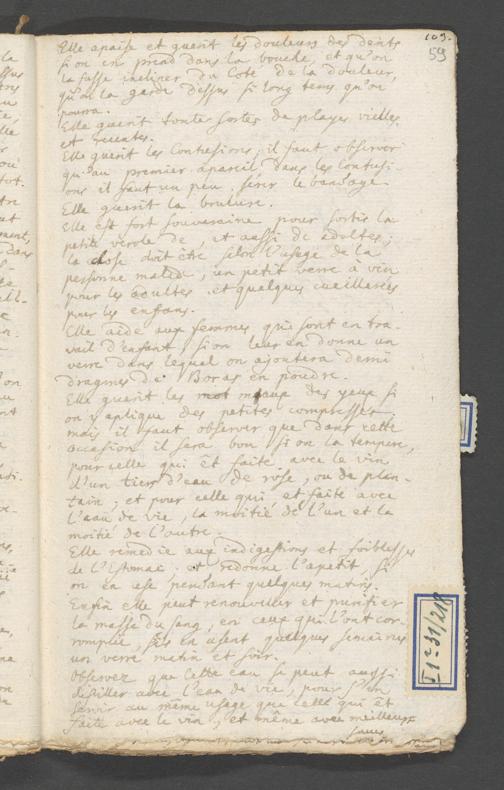 109.
59
Elle apaise et guerit les douleurs des dents
si on en prend dans la bouche, et qu'on
la fasse incliner du Coté de la douleur,
qu'on la garde dessus si long tems qu'on
pourra.
Elle guerit toute sortes de playes vielles
et recentes.
Elle guerit les Contusions; il faut observer
qu'au premier apareil dans les Contusi-
ons il faut un peu serer le bandage.
Elle guerit la brulure.
Elle est fort souveraine pour sortir la
petite verole de, et aussi de adultes;
la dose doit être selon l'usage de la
personne malade, un petit verre à vin
pour les adultes et quelques cueillerées
pour les enfans.
Elle aide aux femmes qui sont en tra-
vail d'enfant, si on leur en donne un
verre dans lequel on ajoutera demi
dragmes de Boras en poudre.
Elle guerit les maux des yeux si
on y aplique des petites compresses,
mais il faut observer que dans cette
occasion il sera bon si on la tempere,
pour celle qui êt faite avec le vin
d'un tiers d'eau de rose, ou de plan-
tain; et pour celle qui et faite avec
l'eau de vie, la moitié de l'un et la
moitié de l'autre.
Elle remedie aux indigestions et foiblesses
de l'Estomac et redonne l'apetit, si
on en use pendant quelques matins.
Enfin elle peut renouveller et purifier
la masse du sang, en ceux qui l'ont cor-
rompüe, s'ils en usent quelques semaines
un verre matin et soir.
Observez que cette eau se peut aussi
distiller avec l'eau de vie, pour s'en
servir au même usage que celle qui êt
faite avec le vin, et même avec meilleur